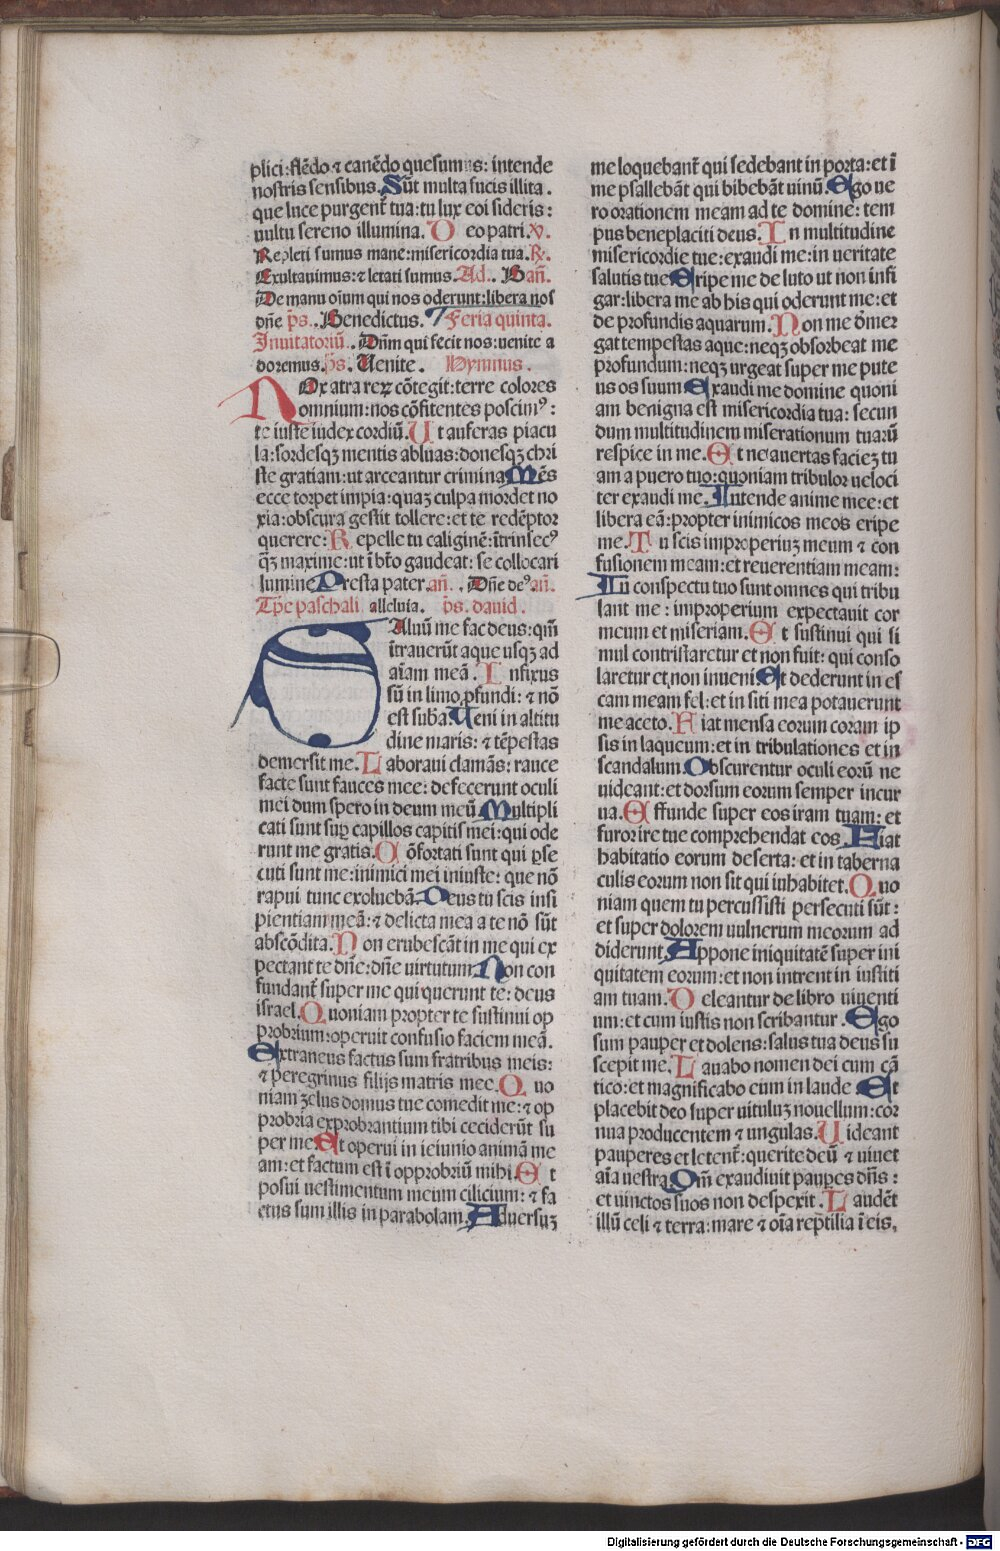 plici: flēdo ⁊ canēdo quesumus: intende
nostris sensibus. Sūt multa fucis illita.
que luce purgent̄ tua: tu lux eoi sideris:
uultu sereno illumina. D eo patri. V.
Repleti sumus mane: misericordia tua. R.
Exultauimus: ⁊ letati sumus. Ad. Bañ.
De manu oīum qui nos oderunt: libera nos
dñe p̄s. Benedictus. Feria quinta.
Inuitatoriū. Dñm qui fecit nos: uenite a
doremus. p̄s. Uenite. Hymnus.
NOx atra reꝝ cōtegit: terre colores
omnium: nos cōfitentes poscimꝰ:
te iuste iudex cordiū. U t auferas piacu
la: sordesqꝫ mentis abluas: donesqꝫ chri
ste gratiam: ut arceantur crimina. Mēs
ecce torpet impia: quaꝫ culpa mordet no
xia: obscura gestit tollere: et te redēptor
querere: R epelle tu caliginē: ītrinsecꝰ
qꝫ maxime: ut ī bt̄o gaudeat: se collocari
lumine. Presta pater. añ. Dñe deꝰ añ.
Tp̄e paschali alleluia. p̄s. dauid.
SAluū me fac deus: qm̄
ītrauerūt aque usqꝫ ad
aīam meā. I nfixus
sū in limo ꝓfundi: ⁊ nō
est subā. Ueni in altitu
dine maris: ⁊ tēpestas
demersit me. L aboraui clamās: rauce
facte sunt fauces mee: defecerunt oculi
mei dum spero in deum meū. Multipli
cati sunt suꝑ capillos capitis mei: qui ode
runt me gratis. C ōfortati sunt qui ꝑse
cuti sunt me: inimici mei iniuste: que nō
rapui tunc exoluebā. Deus tu scis insi
pientiam meā: ⁊ delicta mea a te nō sūt
abscōdita. N on erubescāt in me qui ex
pectant te dñe: dñe virtutum. Non con
fundant̄ super me qui querunt te: deus
israel. Q uoniam propter te sustinui op
probrium: operuit confusio faciem meā.
Extraneus factus sum fratribus meis:
⁊ peregrinus filijs matris mee. Q uo
niam ȝelus domus tue comedit me: ⁊ op
probria exprobrantium tibi ceciderūt su
per me. Et operui in ieiunio animā me
am: et factum est ī opprobriū mihi. E t
posui uestimentum meum cilicium: ⁊ fa
ctus sum illis in parabolam. Aduersuꝫ
me loquebant̄ qui sedebant in porta: et ī
me psallebāt qui bibebāt uinū. Ego ue
ro orationem meam ad te domine: tem
pus beneplaciti deus. I n multitudine
misericordie tue: exaudi me: in ueritate
salutis tue. Eripe me de luto ut non infi
gar: libera me ab his qui oderunt me: et
de profundis aquarum. N on me dēmer
gat tempestas aque: neqꝫ obsorbeat me
profundum: neqꝫ urgeat super me pute
us os suum. Exaudi me domine quoni
am benigna est misericordia tua: secun
dum multitudinem miserationum tuarū
respice in me. E t ne auertas facieꝫ tu
am a puero tuo: quoniam tribulor ueloci
ter exaudi me. Intende anime mee: et
libera eā: propter inimicos meos eripe
me. T u scis improperiuꝫ meum ⁊ con
fusionem meam: et reuerentiam meam:
In conspectu tuo sunt omnes qui tribu
lant me: improperium expectauit cor
meum et miseriam. E t sustinui qui si
mul contristaretur et non fuit: qui conso
laretur et non inueni. Et dederunt in es
cam meam fel: et in siti mea potauerunt
me aceto. F iat mensa eorum coram ip
sis in laqueum: et in tribulationes et in
scandalum. Obscurentur oculi eorū ne
uideant: et dorsum eorum semper incur
ua. E ffunde super eos iram tuam: et
furor ire tue comprehendat eos. Fiat
habitatio eorum deserta: et in taberna
culis eorum non sit qui inhabitet. Q uo
niam quem tu percussisti persecuti sūt:
et super dolorem uulnerum meorum ad
diderunt. Appone iniquitatē super ini
quitatem eorum: et non intrent in iustiti
am tuam. D eleantur de libro uiuenti
um: et cum iustis non scribantur. Ego
sum pauper et dolens: salus tua deus su
scepit me. L audabo nomen dei cum cā
tico: et magnificabo eum in laude. Et
placebit deo super uituluꝫ nouellum: cor
nua producentem ⁊ ungulas. U ideant
pauperes et letent̄: querite deū ⁊ uiuet
aīa uestra. Qm̄ exaudiuit pauꝑes dñs:
et uinctos suos non despexit. L audēt
illū celi ⁊ terra: mare ⁊ oīa reptilia ī eis.
Digitalisierung gefördert durch die Deutsche Forschungsgemeinschaft - DFG